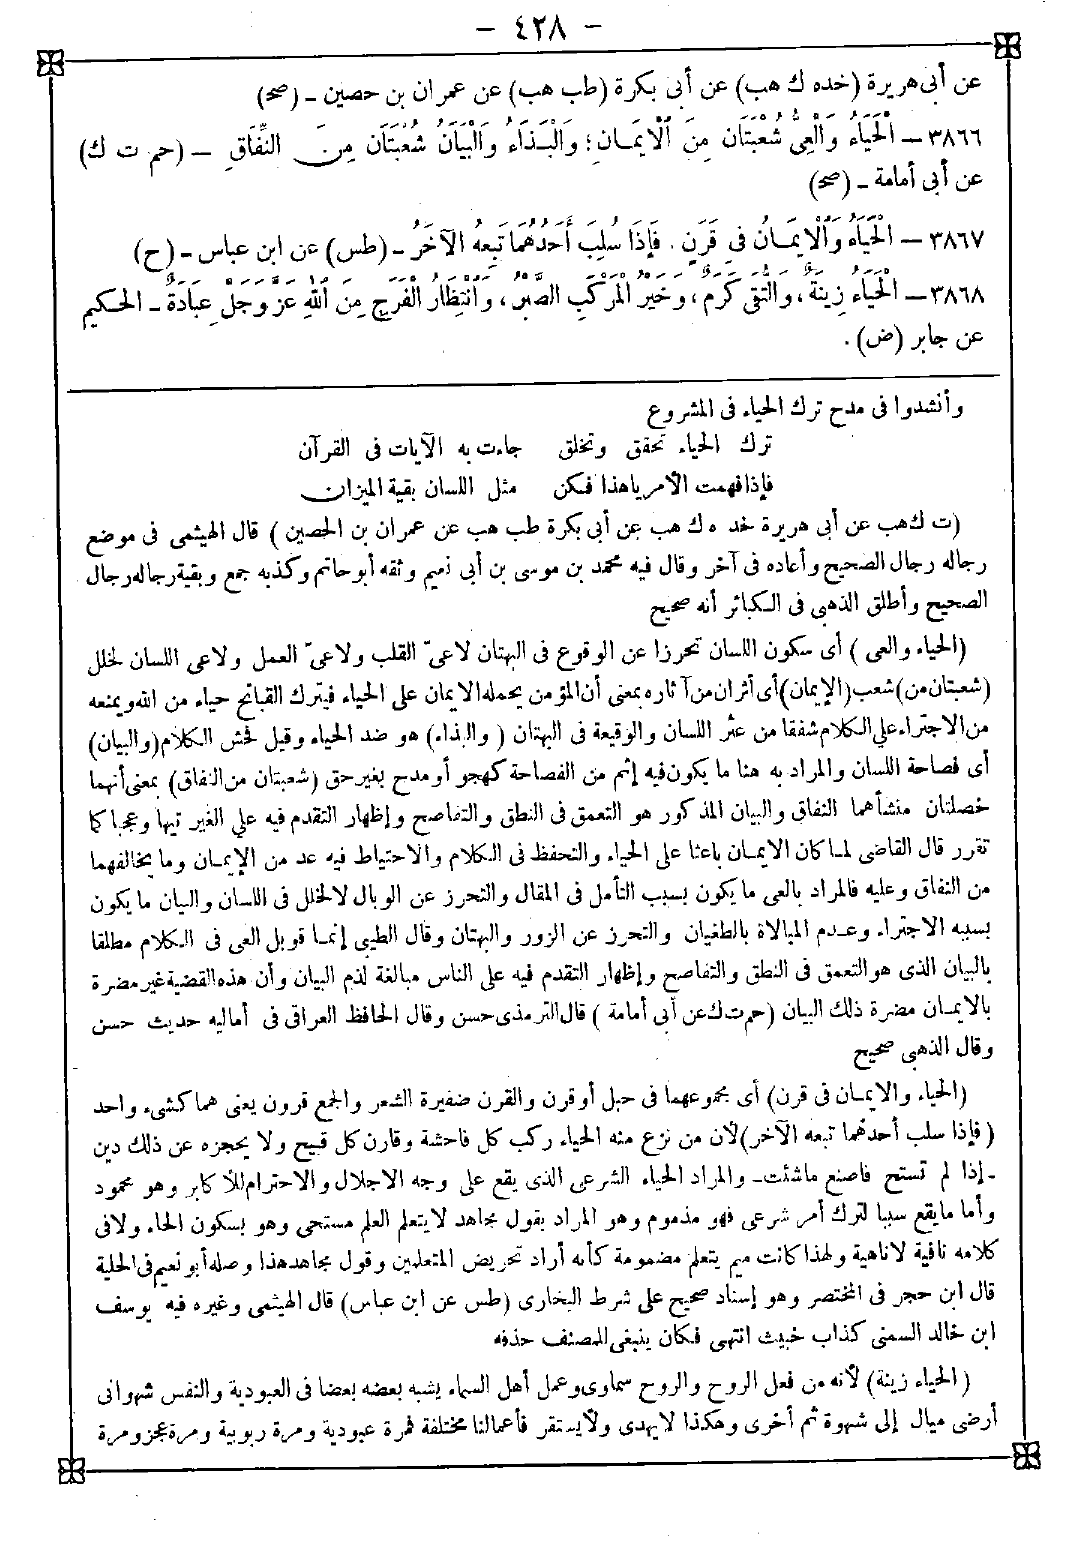 – ٤٢٨ –
عن أبى هريرة (خده ك هب) عن أبى بكرة (طب هب) عن عمران بن حصين – (صح)
٣٨٦٦ – الْحَيَاءُ وَالْعِىُّ شُعْبَتَانِ مِنَ الْإِيمَانِ؛ وَالْبَذَاءُ وَالْبَيَانُ شُعْبَتَانِ مِنَ النِّفَاقِ – (حم ت ك)
عن أبى أمامة – (صح)
٣٨٦٧ – الْحَيَاءُ وَالْإِيمَانُ فِى قَرَنٍ، فَإِذَا سُلِبَ أَحَدُهُمَا تَبِعَهُ الآخَرُ – (طس) عن ابن عباس – (ح)
٣٨٦٨ – الْحَيَاءُ زِينَةٌ، وَالتُّقَى كَرَمٌ، وَخَيْرُ الْمَرْكَبِ الصَّبْرُ، وَانْتِظَارُ الْفَرَجِ مِنَ اللهِ عَزَّ وَجَلَّ عِبَادَةٌ – الحكيم
عن جابر (ض).
وأنشدوا فى مدح ترك الحياء فى المشروع
ترك الحياء تحقق وتخلق جاءت به الآيات فى القرآن
فإذا فهمت الأمر ياهذا فكن مثل اللسان بقية الميزان
(ت ك هب عن أبى هريرة خد ه ك هب عن أبى بكرة طب هب عن عمران بن الحصين) قال الهيثمى فى موضع
رجاله رجال الصحيح وأعاده فى آخر وقال فيه محمد بن موسى بن أبى نعيم وثقه أبو حاتم وكذبه جمع وبقية رجاله رجال
الصحيح وأطلق الذهبى فى الكبائر أنه صحيح
(الحياء والعى) أى سكون اللسان تحرزا عن الوقوع فى البهتان لا عىّ القلب ولا عىّ العمل ولا عى اللسان لخلل
(شعبتان من) شعب (الإيمان) أى أثران من آثاره بمعنى أن المؤمن يحمله الايمان على الحياء فيترك القبائح حياء من الله ويمنعه
من الاجتراء على الكلام شفقا من عثر اللسان والوقيعة فى البهتان (والبذاء) هو ضد الحياء وقيل فحش الكلام (والبيان)
أى فصاحة اللسان والمراد به هنا ما يكون فيه إثم من الفصاحة كهجو أو مدح بغير حق (شعبتان من النفاق) بمعنى أنهما
خصلتان منشأهما النفاق والبيان المذكور هو التعمق فى النطق والتفاصح وإظهار التقدم فيه على الغير تيها وعجبا كما
تقرر قال القاضى لما كان الايمان باعثا على الحياء والتحفظ فى الكلام والاحتياط فيه عد من الإيمان وما يخالفهما
من النفاق وعليه فالمراد بالعى ما يكون بسبب التأمل فى المقال والتحرز عن الوبال لا لخلل فى اللسان والبيان ما يكون
بسببه الاجتراء وعدم المبالاة بالطغيان والتحرز عن الزور والبهتان وقال الطيبى إنما قوبل العى فى الكلام مطلقا
بالبيان الذى هو التعمق فى النطق والتفاصح وإظهار التقدم فيه على الناس مبالغة لذم البيان وأن هذه القضية غير مضرة
بالايمان مضرة ذلك البيان (حم ت ك عن أبى أمامة) قال الترمذى حسن وقال الحافظ العراقى فى أماليه حديث حسن
وقال الذهبى صحيح
(الحياء والايمان فى قرن) أى مجموعهما فى حبل أو قرن والقرن ضفيرة الشعر والجمع قرون يعنى هما كشىء واحد
(فإذا سلب أحدهما تبعه الآخر) لأن من نزع منه الحياء ركب كل فاحشة وقارن كل قبيح ولا يحجزه عن ذلك دين
- إذا لم تستح فاصنع ماشئت - والمراد الحياء الشرعى الذى يقع على وجه الاجلال والاحترام للأكابر وهو محمود
وأما ما يقع سببا لترك أمر شرعى فهو مذموم وهو المراد بقول مجاهد لا يتعلم العلم مستحى وهو بسكون الحاء ولا فى
كلامه نافية لا ناهية ولهذا كانت ميم يتعلم مضمومة كأنه أراد تحريض المتعلمين وقول مجاهد هذا وصله أبو نعيم فى الحلية
قال ابن حجر فى المختصر وهو إسناد صحيح على شرط البخارى (طس عن ابن عباس) قال الهيثمى وغيره فيه يوسف
ابن خالد السمنى كذاب خبيث انتهى فكان ينبغى للمصنف حذفه
(الحياء زينة) لأنه من فعل الروح والروح سماوى وعمل أهل السماء يشبه بعضه بعضا فى العبودية والنفس شهوانى
أرضى ميال إلى شهوة ثم أخرى وهكذا لا يهدى ولا يستقر فأعمالنا مختلفة فمرة عبودية ومرة ربوبية ومرة عجز ومرة